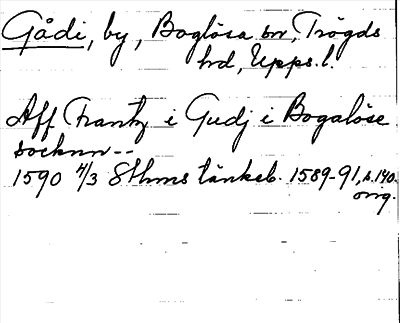 Gådi, by, Boglösa sn, Trögds
hd, Upps. l.
Aff Frantz i Gudj i Bogalöse
socknn--
1590 4/3 Sthms tänkeb. 1589-91, s. 140.
orig.